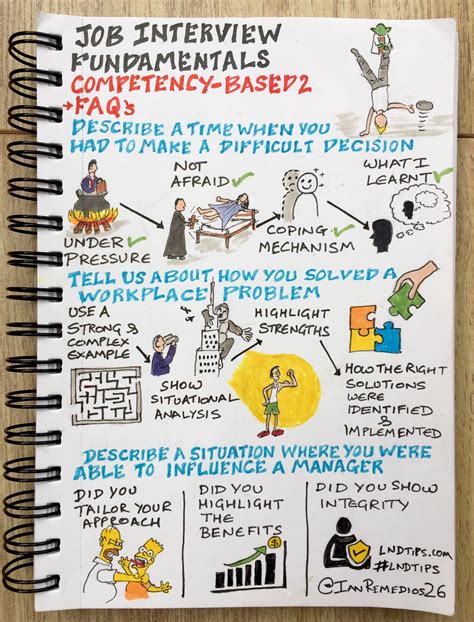 JOB INTERVIEW
FUNDAMENTALS
COMPETENCY-BASED 2
→FAQs
DESCRIBE A TIME WHEN YOU
HAD TO MAKE A DIFFICULT DECISION
UNDER ✓
PRESSURE
NOT
AFRAID ✓
COPING ✓
MECHANISM
WHAT I
LEARNT ✓
TELL US ABOUT HOW YOU SOLVED A
WORKPLACE PROBLEM
USE A
STRONG &
COMPLEX
EXAMPLE
SHOW
SITUATIONAL
ANALYSIS
HIGHLIGHT
STRENGTHS
HOW THE RIGHT
SOLUTIONS
WERE
IDENTIFIED
&
IMPLEMENTED
DESCRIBE A SITUATION WHERE YOU WERE
ABLE TO INFLUENCE A MANAGER
DID YOU
TAILOR YOUR
APPROACH
DID YOU
HIGHLIGHT
THE
BENEFITS
DID YOU SHOW
INTEGRITY
LNDTIPS.COM
#LNDTIPS
@IANREMEDIOS26